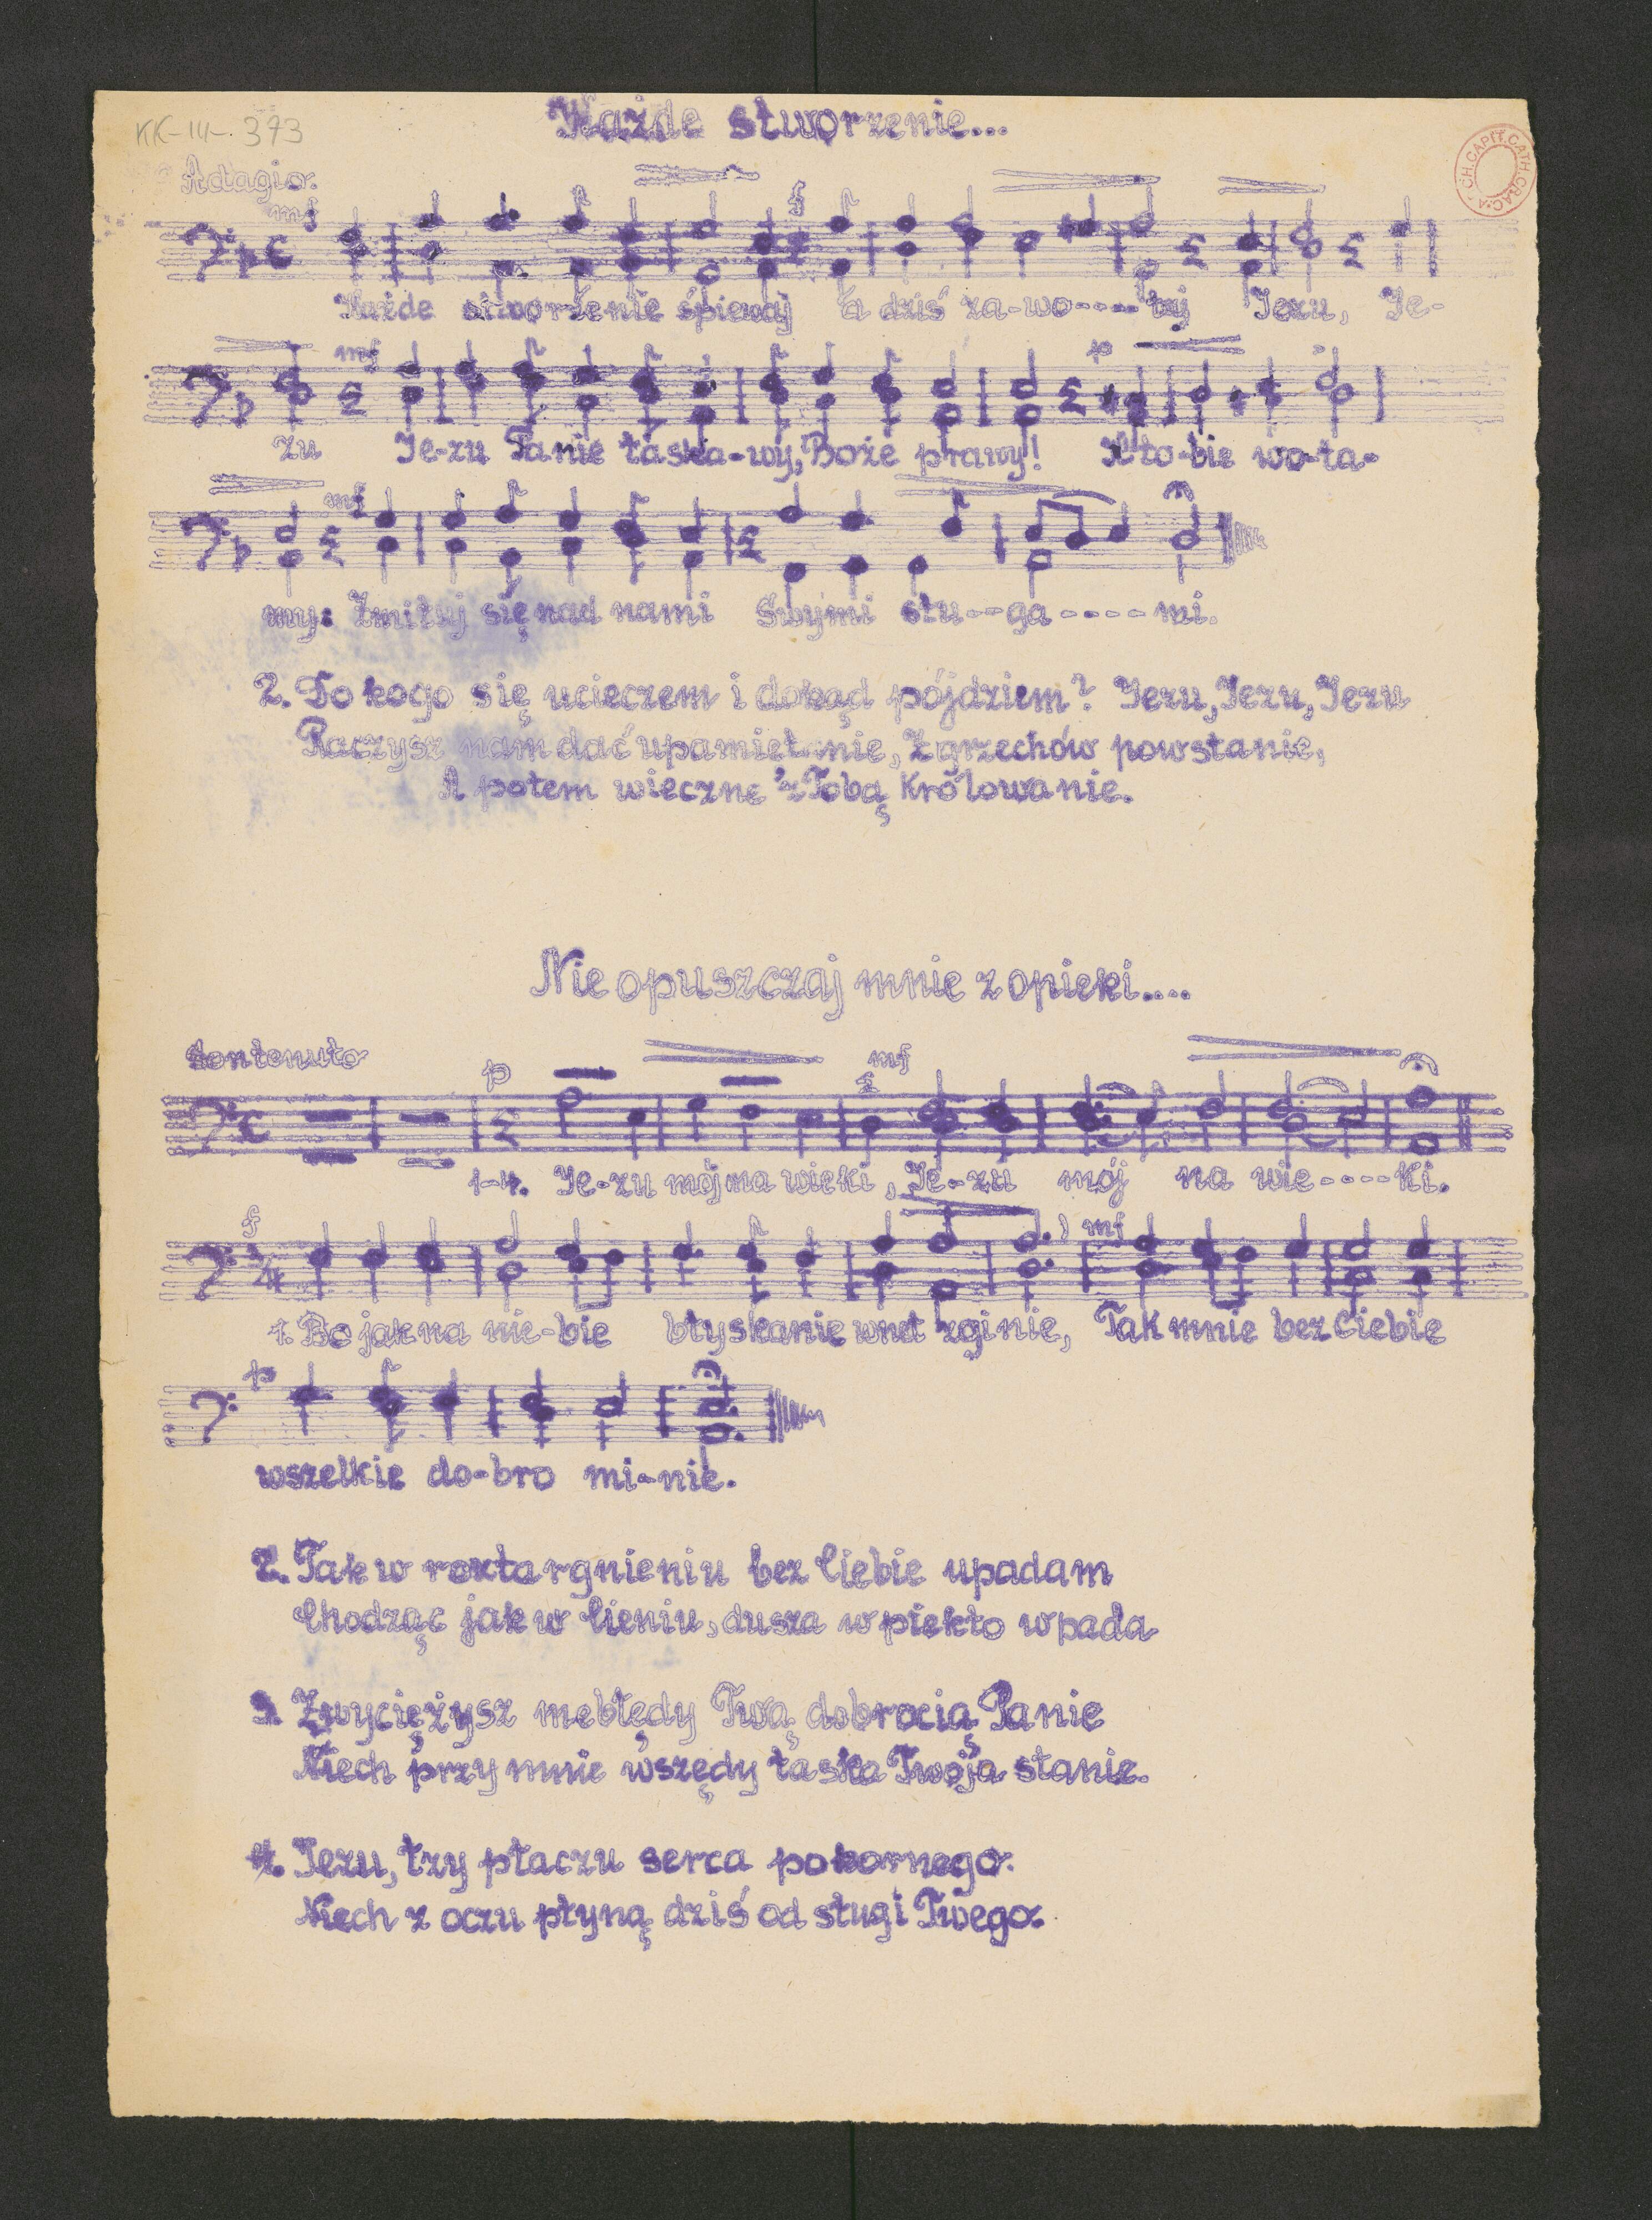 KK-III-373
Każde stworzenie...
CH. CAPIT. CATH. CRAC.
Adagio.
mf f
Każde stworzenie śpiewaj a dziś za-wo----łaj Jezu, Je-
mf p
zu Je-zu Panie łaska-wy, Boże prawy! K'to-bie wo-ła-
mf
my: Zmiłuj się nad nami Swymi słu--ga----mi.
2. Do kogo się ucieczem i dokąd pójdziem? Jezu, Jezu, Jezu
Raczysz nam dać upamiet-nie, z grzechów powstanie,
A potem wieczne z Tobą Królowanie.
Nie opuszczaj mnie z opieki....
Sontenuto
p mf
1-4. Je-zu mój na wieki, Je-zu mój na wie----ki.
f mf
1. Bo jak na nie-bie błyskanie wnet zginie, Tak mnie bez Ciebie
p
wszelkie do-bro mi-nie.
2. Tak w roztargnieniu bez Ciebie upadam
Chodząc jak w Cieniu, dusza w piekło wpada
3. Zwyciężysz me błędy Twą dobrocią Panie
Niech przy mnie wszędy łaska Twoja stanie.
4. Jezu, łzy płaczu serca pokornego.
Niech z oczu płyną dziś od sługi Twego.